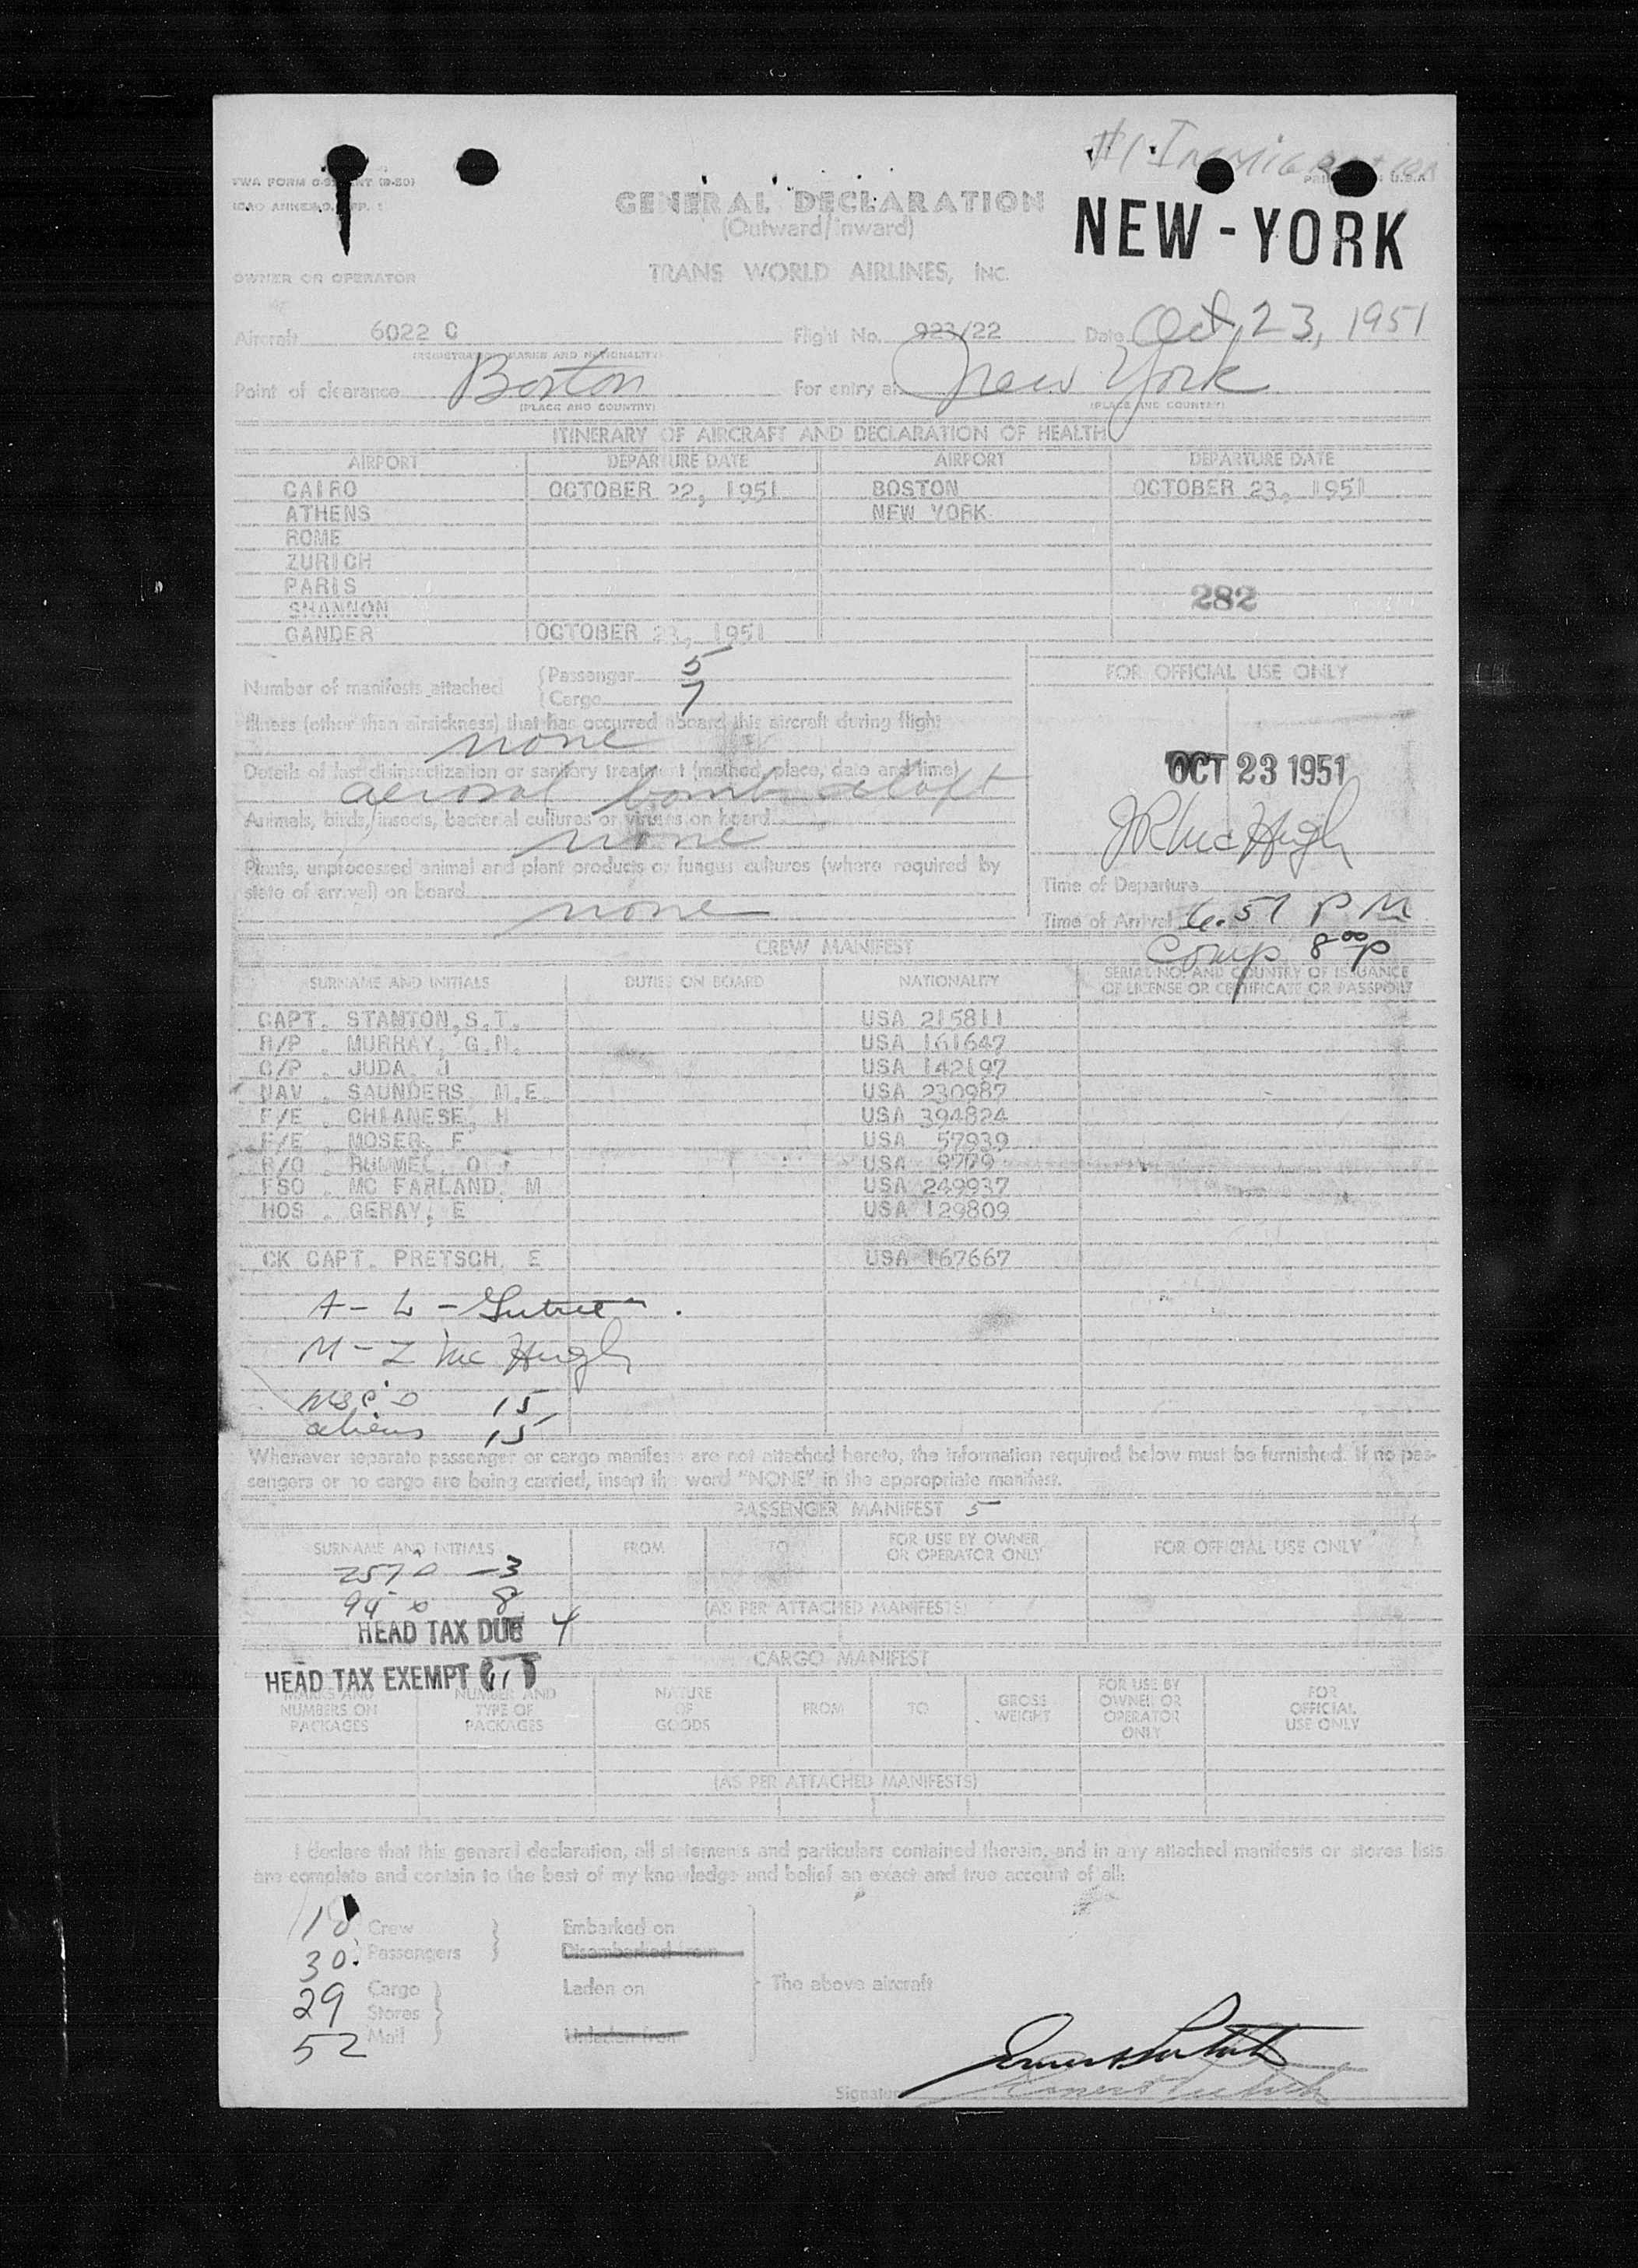 #1 Immigration
TWA FORM
GENERAL DECLARATION
(Outward/Inward)
NEW-YORK
OWNER OR OPERATOR
TRANS WORLD AIRLINES, INC.
Aircraft 6022 C Flight No. 923/22 Date Oct, 23, 1951
(REGISTRATION MARKS AND NATIONALITY)
Point of clearance Boston For entry at New York
(PLACE AND COUNTRY) (PLACE AND COUNTRY)
ITINERARY OF AIRCRAFT AND DECLARATION OF HEALTH
AIRPORT DEPARTURE DATE AIRPORT DEPARTURE DATE
CAIRO OCTOBER 22, 1951 BOSTON OCTOBER 23, 1951
ATHENS NEW YORK
ROME
ZURICH
PARIS 282
SHANNON
GANDER OCTOBER 23, 1951
Number of manifests attached Passenger 5
Cargo 7
FOR OFFICIAL USE ONLY
Illness (other than airsickness) that has occurred aboard this aircraft during flight
none
Details of last disinsectization or sanitary treatment (method, place, date and time)
aerosol bomb aloft
OCT 23 1951
Animals, birds, insects, bacterial cultures or viruses on board
none
JR McHugh
Plants, unprocessed animal and plant products or fungus cultures (where required by
state of arrival) on board
none
Time of Departure
Time of Arrival 6.57 PM
Comp 8 00 P
CREW MANIFEST
SURNAME AND INITIALS DUTIES ON BOARD NATIONALITY SERIAL NO. AND COUNTRY OF ISSUANCE
OF LICENSE OR CERTIFICATE OR PASSPORT
CAPT. STANTON, S.T. USA 215811
R/P . MURRAY, G.N. USA 161647
C/P . JUDA, J USA 142197
NAV . SAUNDERS, M.E. USA 230987
F/E . CHIANESE, H USA 394824
F/E . MOSER, F USA 57939
R/O . RUMMEL, O USA 9779
FSO . MC FARLAND, M USA 249937
HOS . GERAY, E USA 129809
CK CAPT. PRETSCH, E USA 167667
A - L -
M - Z McHugh
15
aliens 15
Whenever separate passenger or cargo manifests are not attached hereto, the information required below must be furnished. If no pas-
sengers or no cargo are being carried, insert the word "NONE" in the appropriate manifest.
PASSENGER MANIFEST 5
SURNAME AND INITIALS FROM TO FOR USE BY OWNER
OR OPERATOR ONLY FOR OFFICIAL USE ONLY
257 - 3
94 8
(AS PER ATTACHED MANIFESTS)
HEAD TAX DUE 4
CARGO MANIFEST
HEAD TAX EXEMPT 11
MARKS AND
NUMBERS ON
PACKAGES NUMBER AND
TYPE OF
PACKAGES NATURE
OF
GOODS FROM TO GROSS
WEIGHT FOR USE BY
OWNER OR
OPERATOR
ONLY FOR
OFFICIAL
USE ONLY
(AS PER ATTACHED MANIFESTS)
I declare that this general declaration, all statements and particulars contained therein, and in any attached manifests or stores lists
are complete and contain to the best of my knowledge and belief an exact and true account of all:
10 Crew Embarked on
30 Passengers Disembarked from
29 Cargo Laden on The above aircraft
Stores
52 Mail Unladen from
Signature